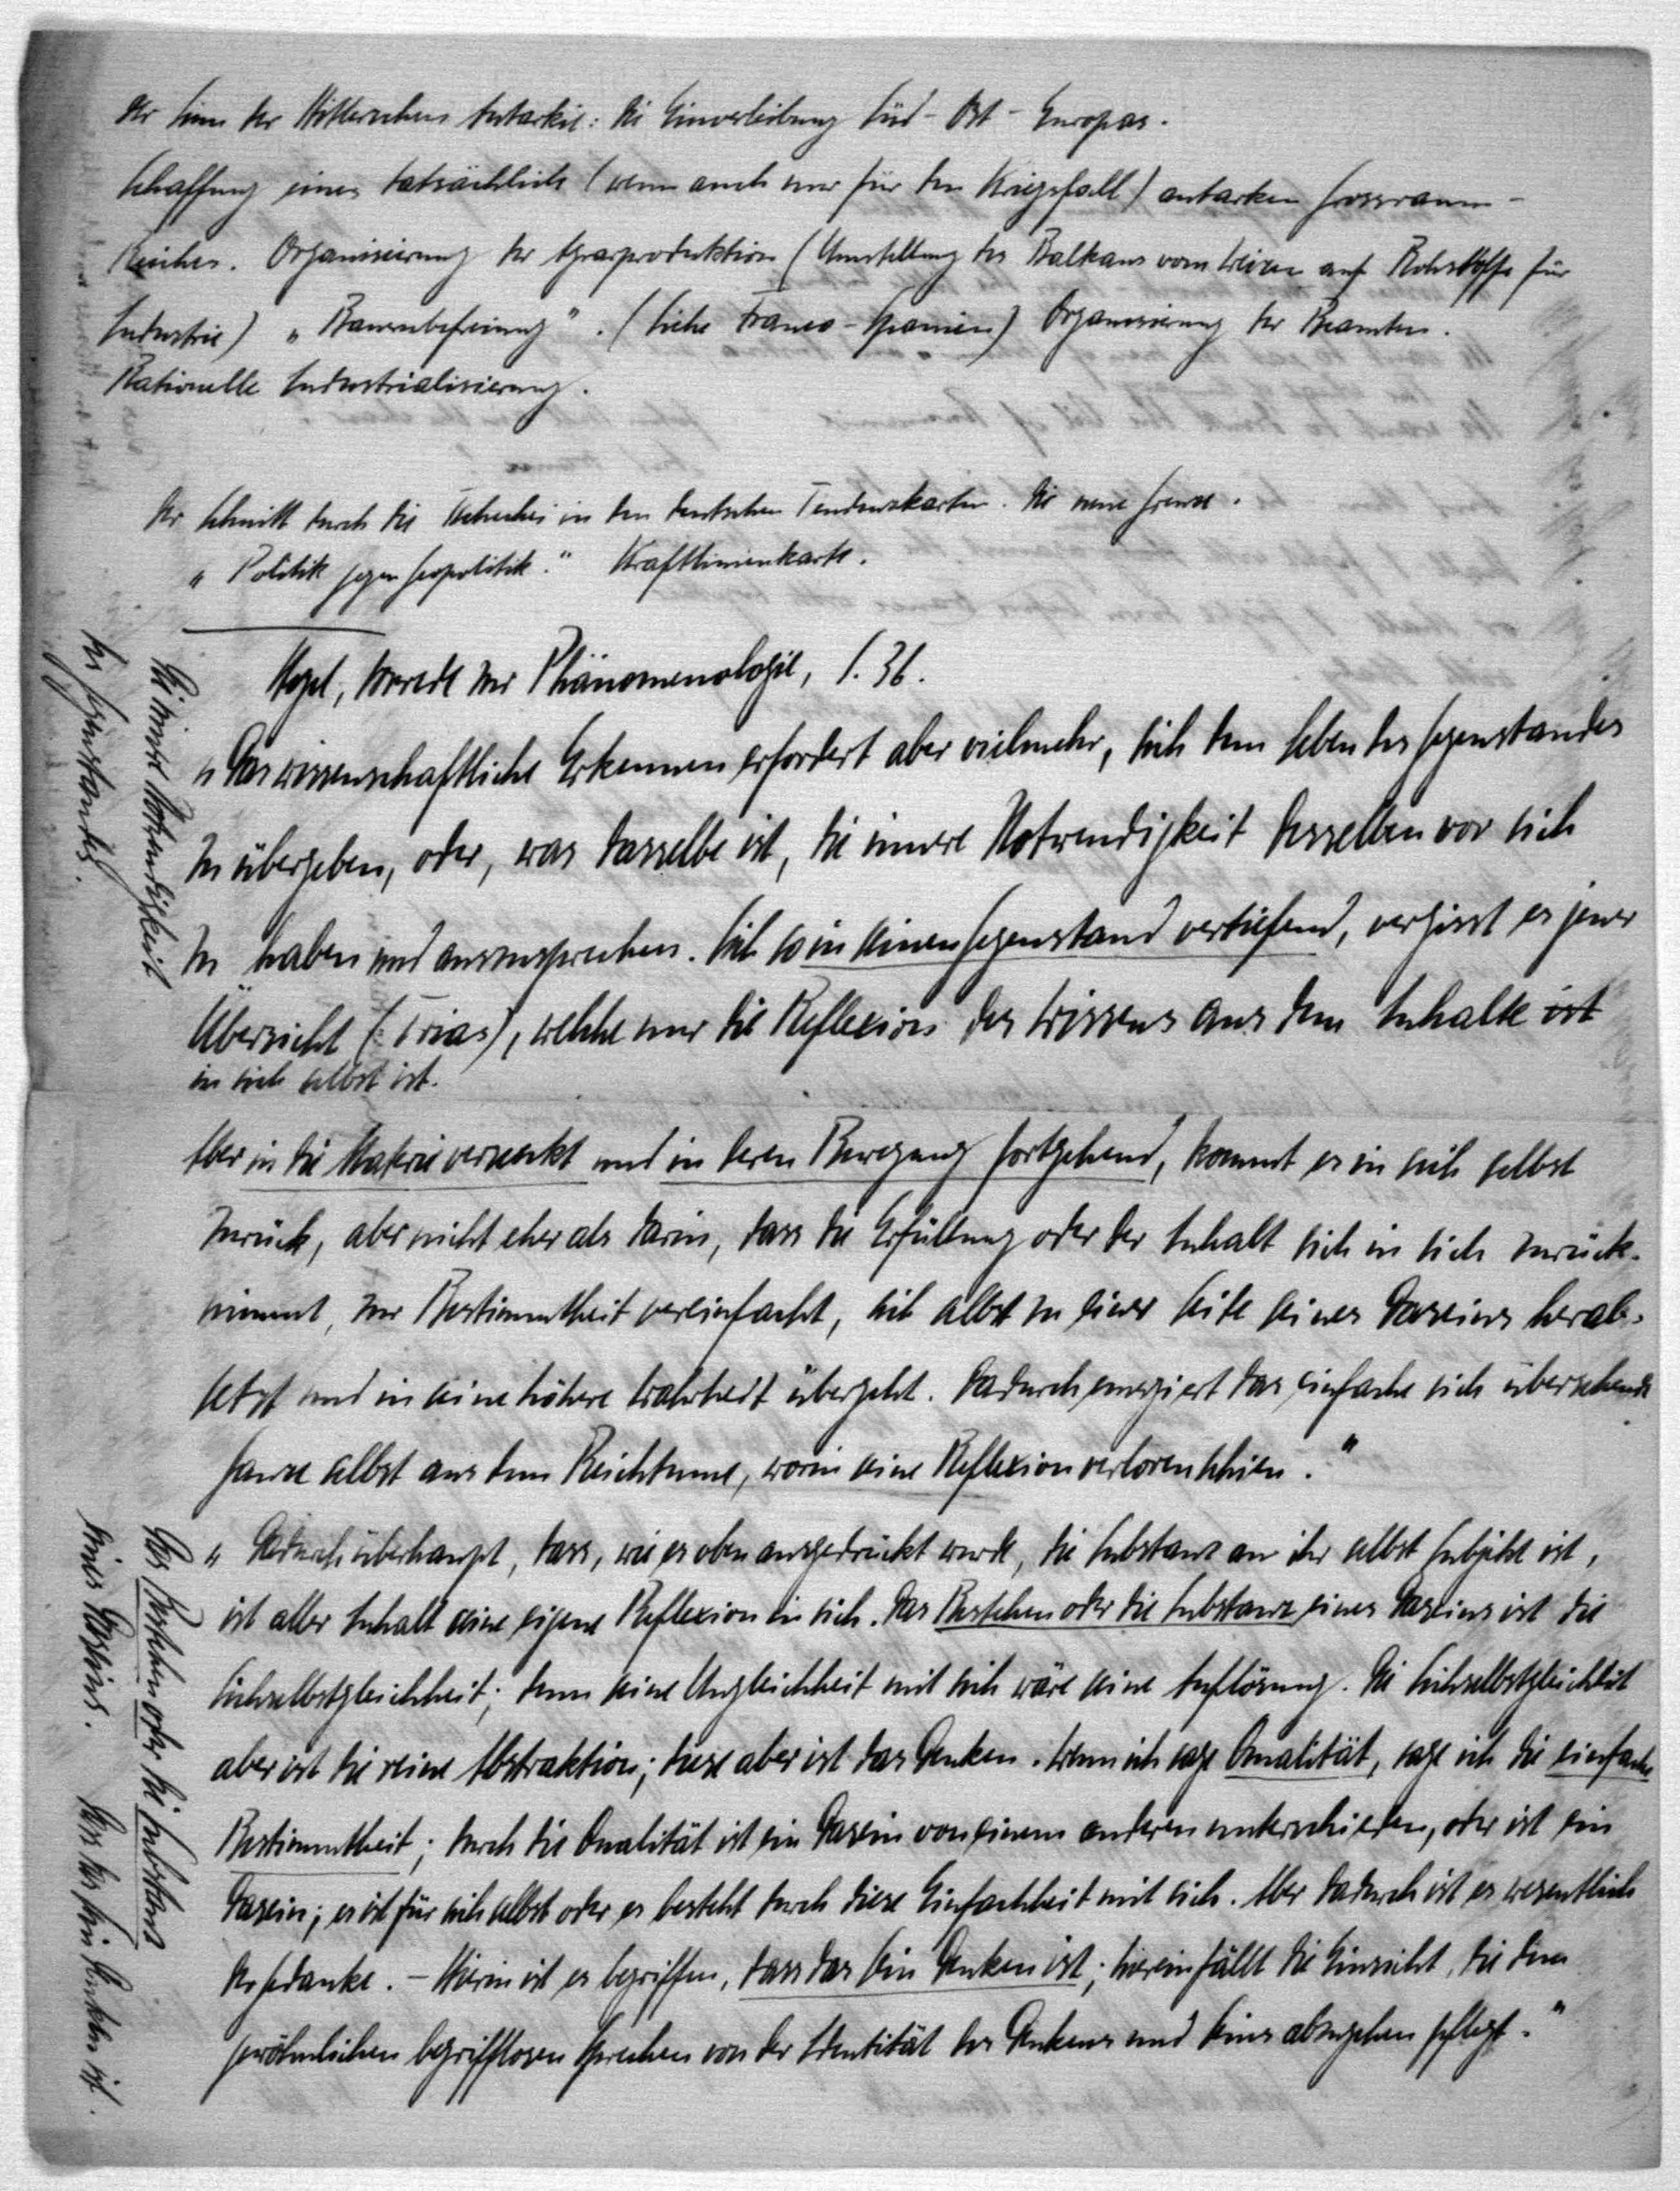 Der Sinn der Hitlerschen Autarkie: die Einverleibung Süd-Ost-Europas.
Schaffung eines tatsächlich (wenn auch nur für den Kriegsfall) autarken Grossraum-
Reiches. Organisierung der Agrarproduktion (Umstellung des Balkans vom Weizen auf Rohstoffe für
Industrie) „Bauernbefreiung". (Siehe Franco-Spanien) Organisierung der Beamten.
Rationelle Industrialisierung.
Der Schnitt durch die Tschechei in den deutschen Tendenzkarten. Die neue Grenze.
„Politik gegen Geopolitik." Kraftlinienkarte.
Hegel, Vorrede zur Phänomenologie, S. 36.
„Das wissenschaftliche Erkennen erfordert aber vielmehr, sich dem Leben des Gegenstandes
zu übergeben, oder, was dasselbe ist, die innere Notwendigkeit desselben vor sich
zu haben und auszusprechen. Sich so in seinen Gegenstand vertiefend, vergisst es jener
Übersicht (Trias), welche nur die Reflexion des Wissens aus dem Inhalte ist
in sich selbst ist.
Aber in die Materie versenkt und in deren Bewegung fortgehend, kommt es in sich selbst
zurück, aber nicht eher als darin, dass die Erfüllung oder der Inhalt sich in sich zurück-
nimmt, zur Bestimmtheit vereinfacht, sich selbst zu einer Seite seines Daseins herab-
setzt und in seine höhere Wahrheit übergeht. Dadurch emergiert das einfache sich übersehende
Ganze selbst aus dem Reichtume, worin seine Reflexion verloren schien."
„Dadurch überhaupt, dass, wie es oben ausgedrückt wurde, die Substanz an ihr selbst Subjekt ist,
ist aller Inhalt seine eigene Reflexion in sich. Das Bestehen oder die Substanz eines Daseins ist die
Sichselbstgleichheit; denn seine Ungleichheit mit sich wäre seine Auflösung. Die Sichselbstgleichheit
aber ist die reine Abstraktion; diese aber ist das Denken. Wenn ich sage Qualität, sage ich die einfache
Bestimmtheit; durch die Qualität ist ein Dasein von einem anderen unterschieden, oder ist ein
Dasein; es ist für sich selbst oder es besteht durch diese Einfachheit mit sich. Aber dadurch ist es wesentlich
der Gedanke. – Hierin ist es begriffen, dass das Sein Denken ist; hierein fällt die Einsicht, die dem
gewöhnlichen begrifflosen Sprechen von der Identität des Denkens und Seins abzugehen pflegt."
Die innere Notwendigkeit
des Gegenstandes.
Das Bestehen oder die Substanz
eines Daseins. Dass das Sein Denken ist.